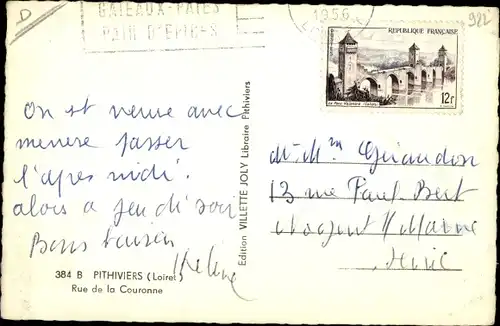 D
GATEAUX-PATES
PAIN D'EPICES
1956
982
REPUBLIQUE FRANÇAISE
Le Pont Valentré - Cahors
12F
On est venue avec
menere passer
l'après midi.
alors a jeudi soir
Bons baisers
Hélène
Mr Mme Giraudon
13 rue Paul Bert
Nogent s/ Marne
Seine
Edition VILLETTE JOLY Libraire Pithiviers
384 B PITHIVIERS (Loiret)
Rue de la Couronne